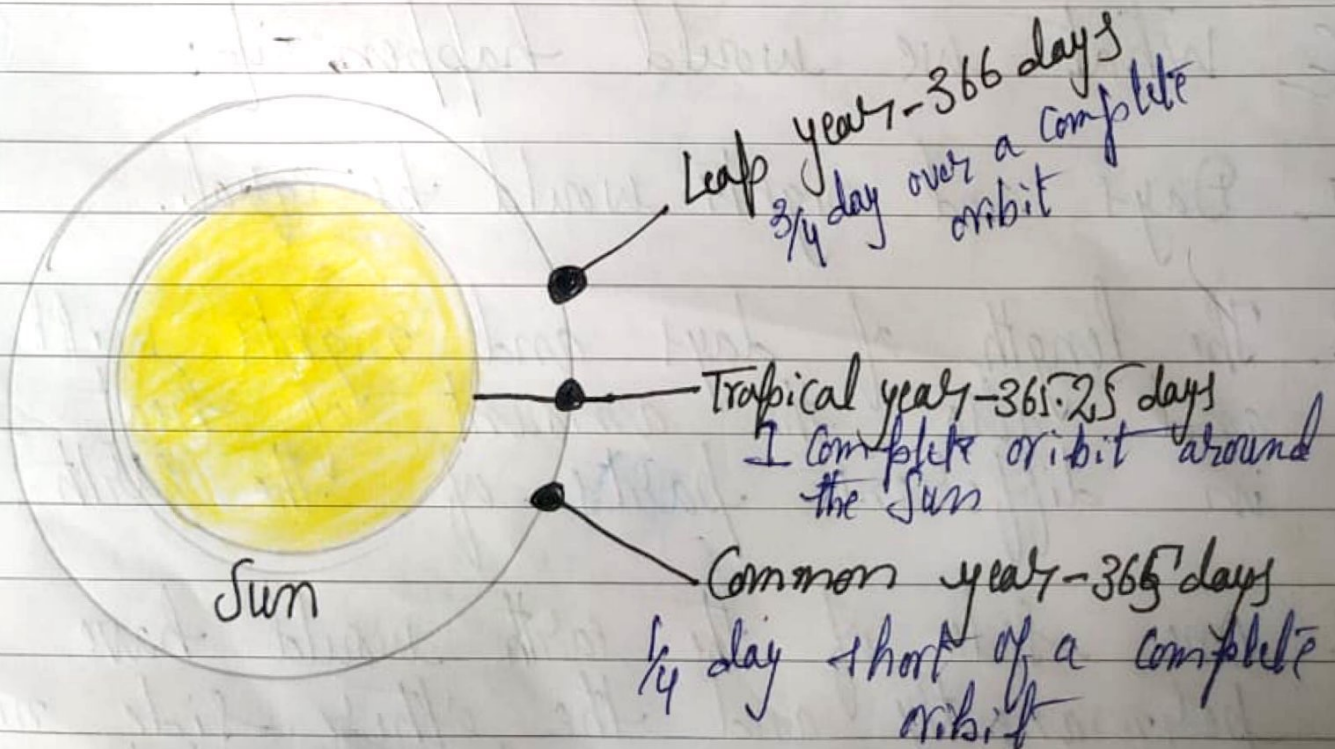 Leap year-366 days
3/4 day over a complete
oribit
Trapical year-365.25 days
1 complete oribit around
the Sun
Common year-365 days
1/4 day short of a complete
oribit
Sun